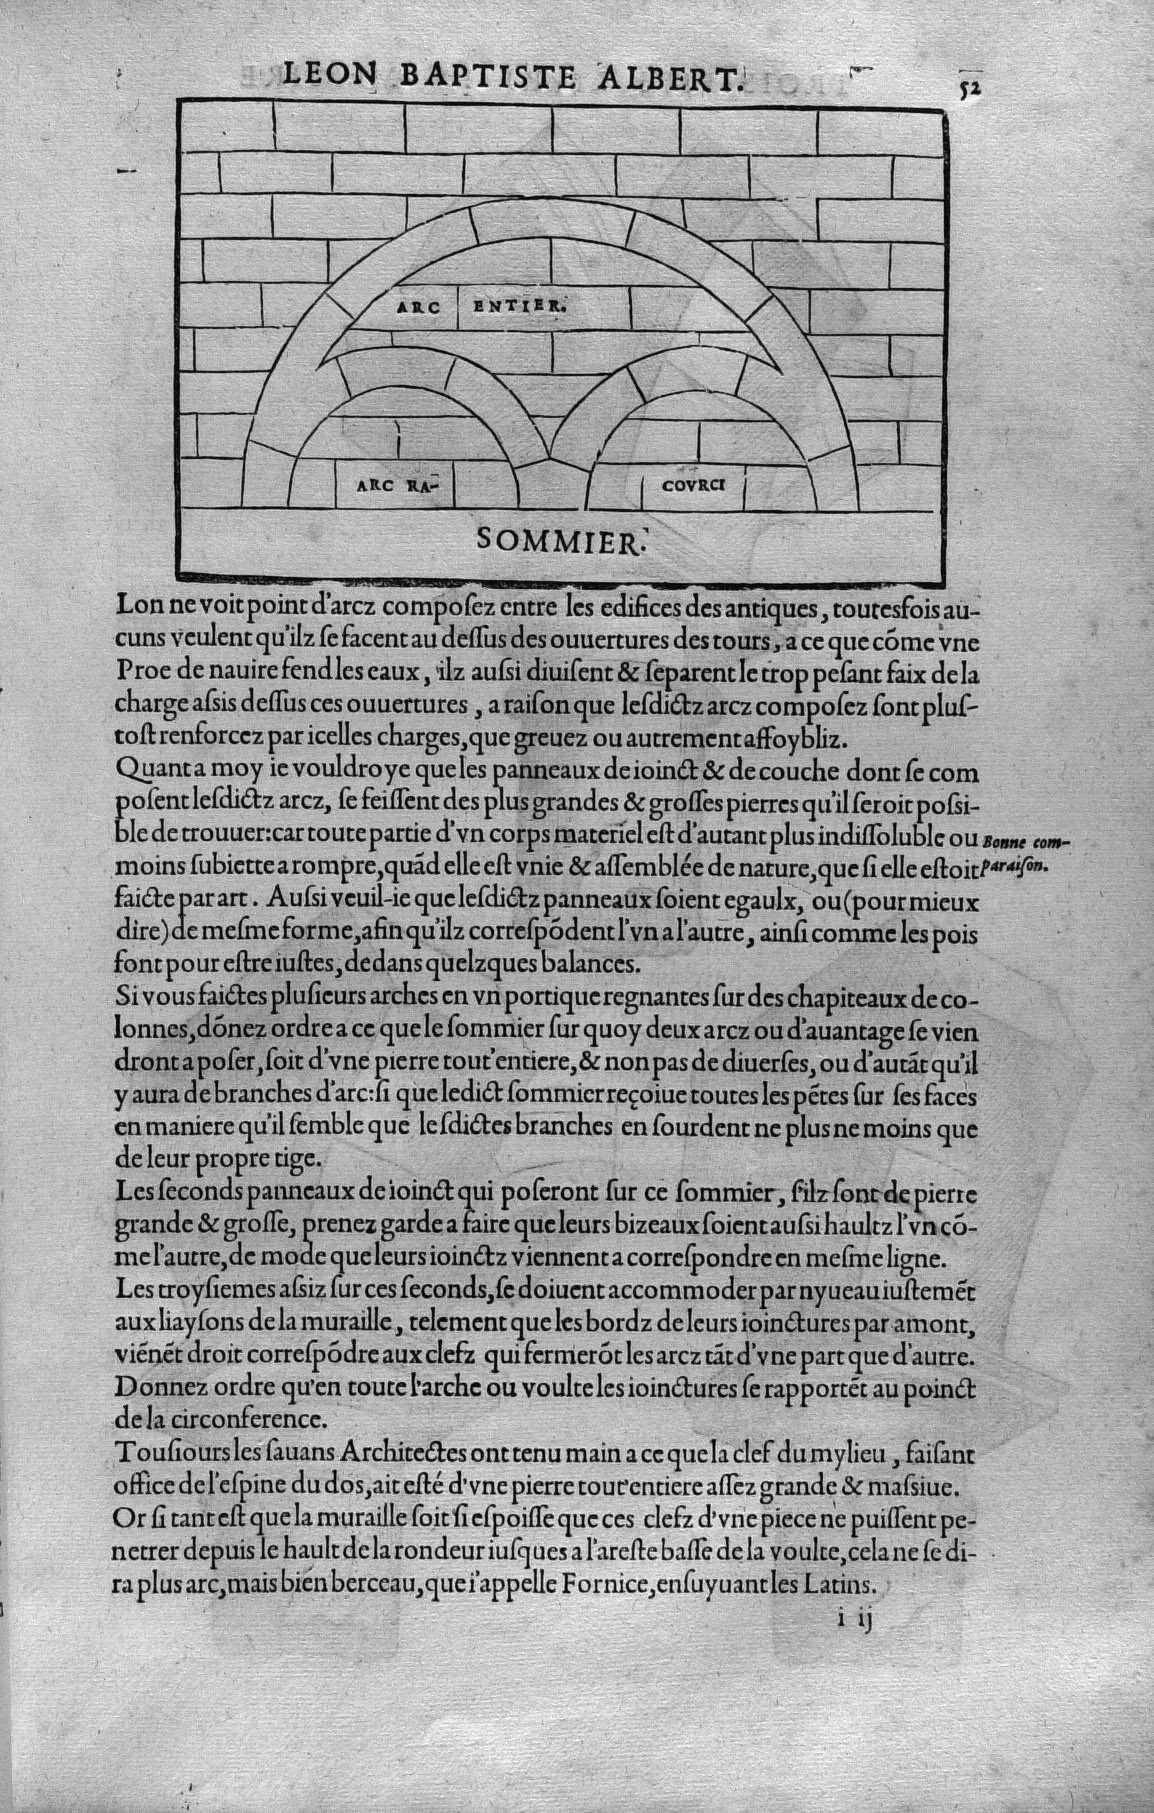 LEON BAPTISTE ALBERT.
52
ARC ENTIER.
ARC RA-
COVRCI
SOMMIER.
Lon ne voit point d'arcz composez entre les edifices des antiques, toutesfois au-
cuns veulent qu'ilz se facent au dessus des ouuertures des tours, a ce que cõme vne
Proe de nauire fend les eaux, ilz aussi diuisent & separent le trop pesant faix de la
charge assis dessus ces ouuertures, a raison que lesdictz arcz composez sont plus-
tost renforcez par icelles charges, que greuez ou autrement affoybliz.
Quant a moy ie vouldroye que les panneaux de ioinct & de couche dont se com
posent lesdictz arcz, se feissent des plus grandes & grosses pierres qu'il seroit possi-
ble de trouuer: car toute partie d'vn corps materiel est d'autant plus indissoluble ou
moins subiette a rompre, quãd elle est vnie & assemblée de nature, que si elle estoit
Bonne com-
paraison.
faicte par art. Aussi veuil-ie que lesdictz panneaux soient egaulx, ou (pour mieux
dire) de mesme forme, afin qu'ilz correspõdent l'vn a l'autre, ainsi comme les pois
font pour estre iustes, dedans quelzques balances.
Si vous faictes plusieurs arches en vn portique regnantes sur des chapiteaux de co-
lonnes, dõnez ordre a ce que le sommier sur quoy deux arcz ou d'auantage se vien
dront a poser, soit d'vne pierre tout'entiere, & non pas de diuerses, ou d'autãt qu'il
y aura de branches d'arc: si que ledict sommier reçoiue toutes les pẽtes sur ses faces
en maniere qu'il semble que lesdictes branches en sourdent ne plus ne moins que
de leur propre tige.
Les seconds panneaux de ioinct qui poseront sur ce sommier, s'ilz sont de pierre
grande & grosse, prenez garde a faire que leurs bizeaux soient aussi haultz l'vn cõ-
me l'autre, de mode que leurs ioinctz viennent a correspondre en mesme ligne.
Les troysiemes assiz sur ces seconds, se doiuent accommoder par nyueau iustemẽt
aux liaysons de la muraille, telement que les bordz de leurs ioinctures par amont,
viẽnẽt droit correspõdre aux clefz qui fermerõt les arcz tãt d'vne part que d'autre.
Donnez ordre qu'en toute l'arche ou voulte les ioinctures se rapportẽt au poinct
de la circonference.
Tousiours les sauans Architectes ont tenu main a ce que la clef du mylieu, faisant
office de l'espine du dos, ait esté d'vne pierre tout'entiere assez grande & massiue.
Or si tant est que la muraille soit si espoisse que ces clefz d'vne piece ne puissent pe-
netrer depuis le hault de la rondeur iusques a l'areste basse de la voulte, cela ne se di-
ra plus arc, mais bien berceau, que i'appelle Fornice, ensuyuant les Latins.
i ij